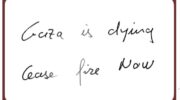 Gaza is dying
Cease fire Now